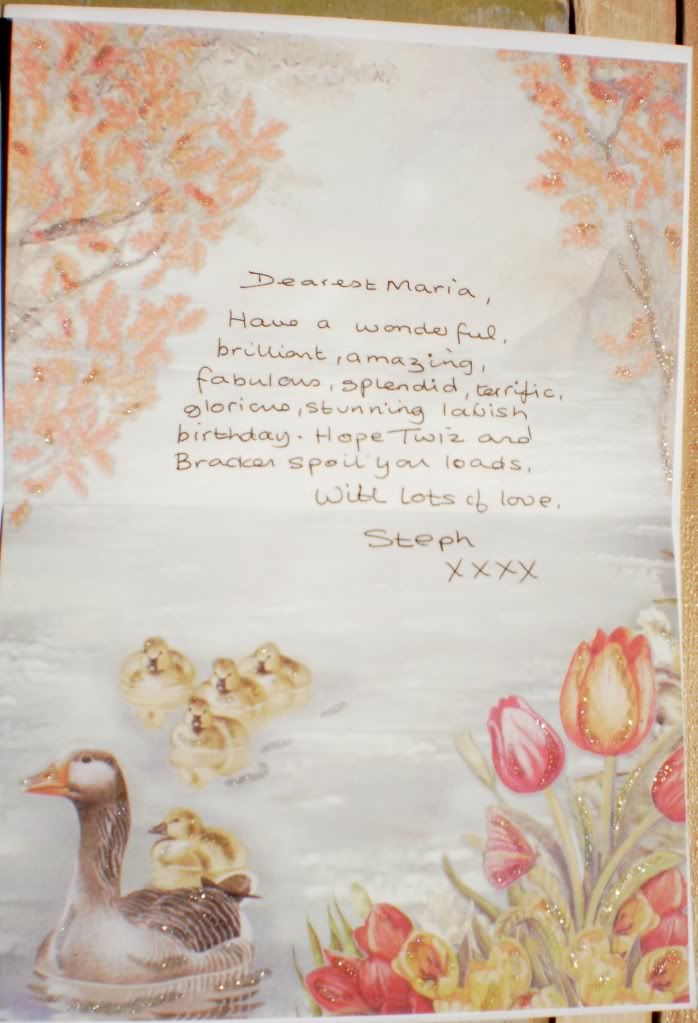 Dearest Maria,
Have a wonderful,
brilliant, amazing,
fabulous, splendid, terrific,
glorious, stunning lavish
birthday. Hope Twiz and
Bracken spoil you loads.
With lots of love.
Steph
xxxx